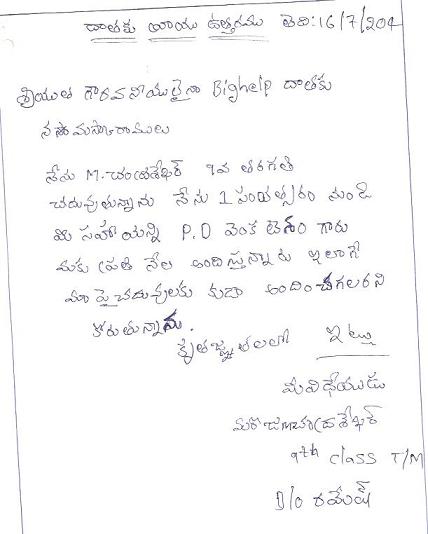 దాతకు వ్రాయు ఉత్తరము తెది: 16/7/204
శ్రీయుత గౌరవనీయులైన Bighelp దాతకు
నమస్కారములు
నేను M. చంద్రశేఖర్ 9వ తరగతి
చదువుతున్నాను నేను 1 సంవత్సరం నుండి
మీ సహాయన్ని P.D వెంకటేశం గారు
మకు ప్రతి నెల అందిస్తున్నారు ఇలాగే
మా పైచదువులకు కుడా అందించగలరని
కోరుతున్నాను.
కృతజ్ఞతలతో ఇట్లు
మీవిధేయుడు
చంద్రశేఖర్
9th class T/M
D/o రమేష్